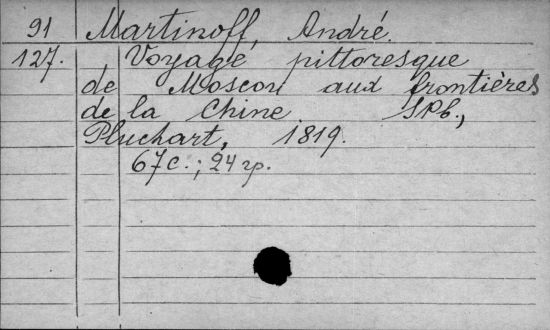 91 Martinoff, André.
127. Voyage pittoresque
de Moscou aux frontières
de la Chine SPb.,
Pluchart, 1819.
67 с.; 24 гр.